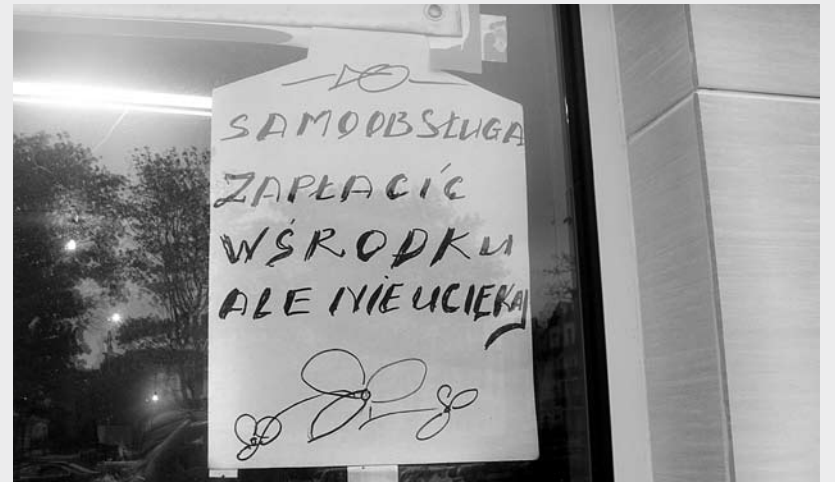 SAMOOBSŁUGA
ZAPŁACIĆ
WŚRODKU
ALE NIE UCIEKAJ